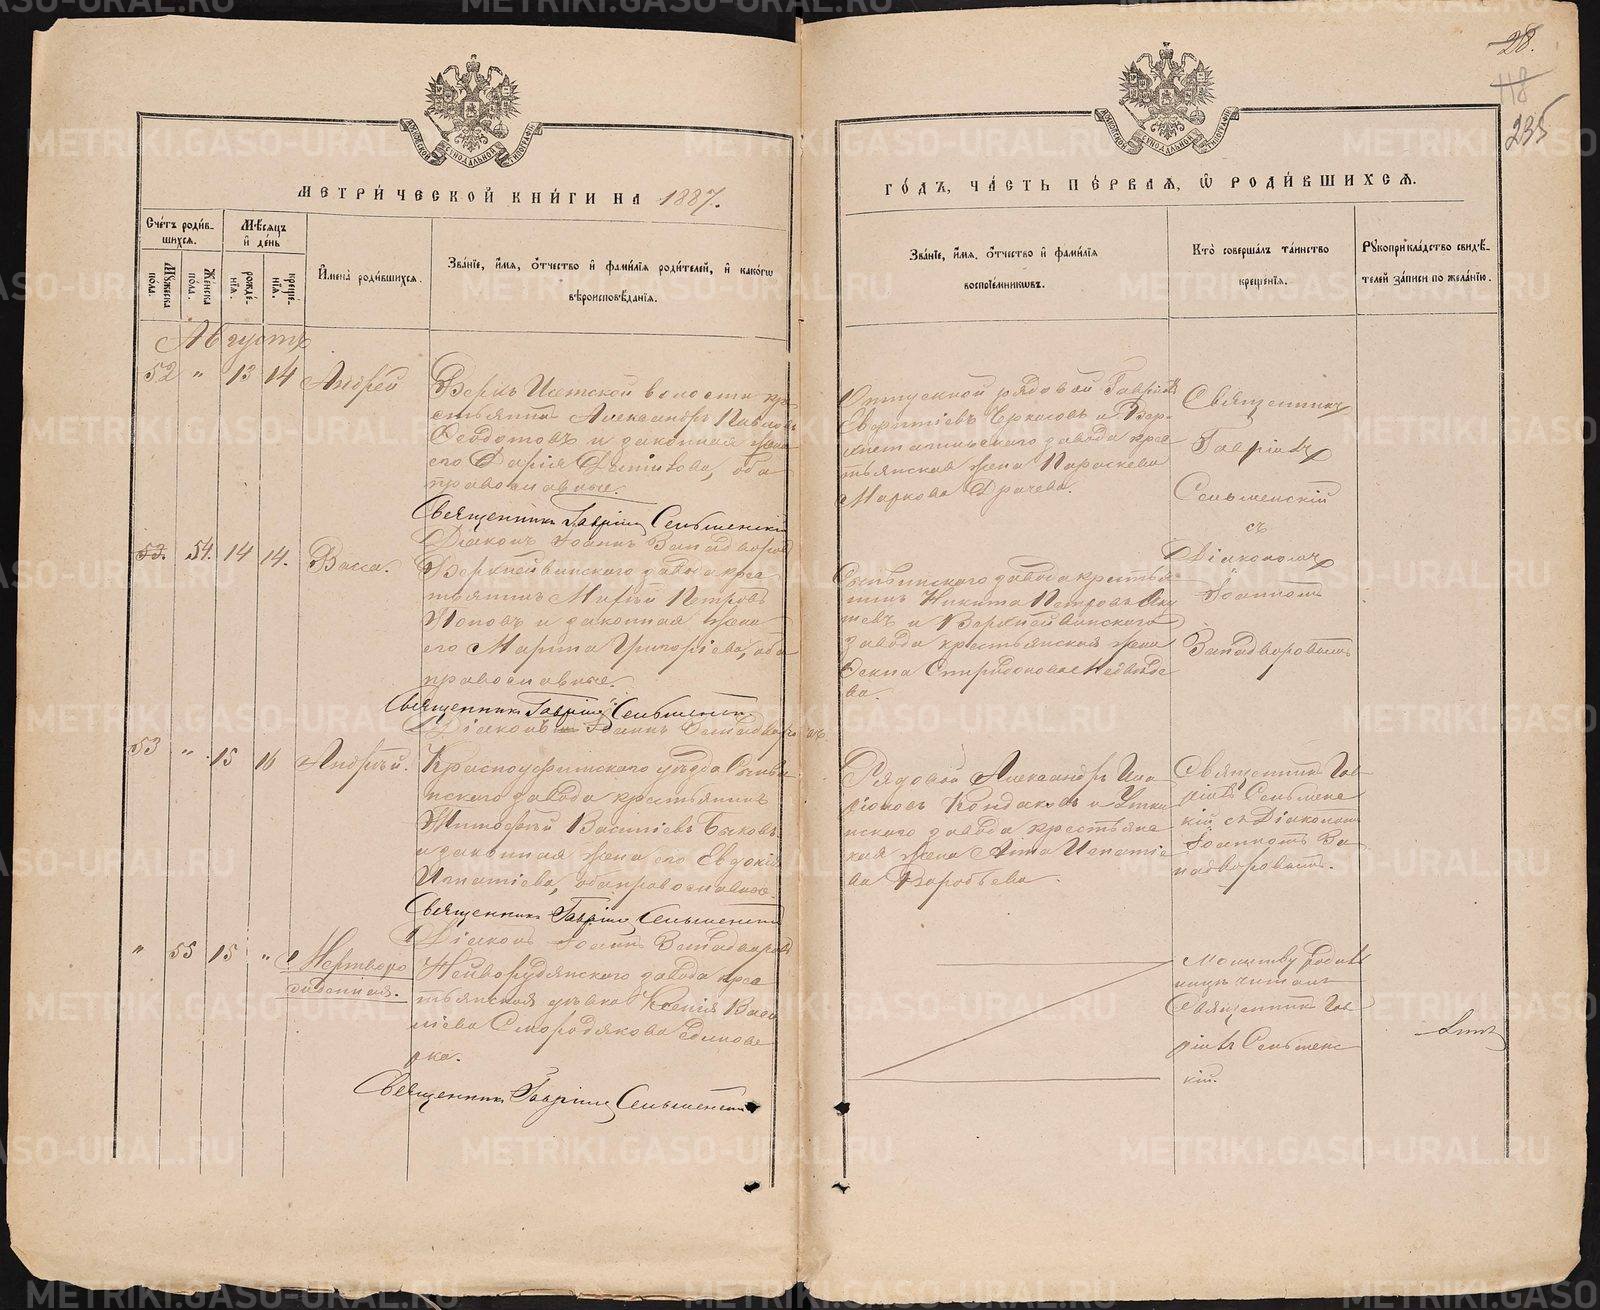 28.
118
235
МОСКОВСКОЙ СѴНОДАЛЬНОЙ ТИПОГРАФІИ
МОСКОВСКОЙ СѴНОДАЛЬНОЙ ТИПОГРАФІИ
МЕТРИ́ЧЕСКОЙ КНИ́ГИ НА 1887.
ГО́ДЪ, ЧА́СТЬ ПЕ́РВАЯ, Ѽ РОДИ́ВШИХСЯ.
Сче́тъ роди́в-
шихся.
Му́жеска
пола.
Же́нска
по́ла.
Мѣ́сяцъ
и҆ де́нь
рожде́-
нїя.
креще́-
нїя.
И҆мена̀ роди́вшихся.
Зва́нїе, и҆́мя, ѻ҆́тчество и҆ фами́лїя роди́телей, и҆ како́гѡ
вѣроисповѣ́данїя.
Зва́нїе, и҆́мя, ѻ҆́тчество и҆ фами́лїя
воспрїе́мниковъ.
Кто̀ соверша́лъ та́инство
креще́нїя.
Рꙋкоприкла́дство свидѣ́-
телей за́писи по жела́нїю.
Августъ
52 " 13 14 Андрей
Верхъ Исетской волости кре
стьянинъ Александръ Павловъ
Ѳеодотовъ и законная жена
его Дарія, оба
православные.
Священникъ Гавріилъ Сельменскій
Діаконъ Іоаннъ Западворовъ
Отпускной рядовой Гавріилъ
Черкасовъ и Вер
завода крес
тьянская жена Параскева
Маркова Драчева.
Священникъ
Гавріилъ
Сельменскій
съ
Діакономъ
Іоанномъ
Западворовымъ
53. 54. 14 14. Васса.
Верхнейвинского завода крес
тьянинъ Матѳій Петровъ
Поповъ и законная жена
его Марина Григоріева, оба
православные.
Священникъ Гавріилъ Сельменскій
Діаконъ Іоаннъ Западворовъ
Сылвинского завода крестья-
нинъ Никита Петровъ
и Верхнейвинского
завода крестьянская жена
Ѳекла Спиридонова
ва.
53 " 15 16 Андрей.
Красноуфимского уѣзда Сылви
нского завода крестьянинъ
Тимоѳей Василіевъ Быковъ
и законная жена его Евдокія
Игнатіева, оба православные
Священникъ Гавріилъ Сельменскій
Діаконъ Іоаннъ Западворовъ
Рядовой Александръ Ила
ріоновъ Кондаковъ и Уткин
нского завода крестьянс
кая жена Анна Игнатіе
ва Воробьева.
Священникъ Гав
ріилъ Сельменс
кій съ Діакономъ
Іоанномъ За
падворовымъ.
" 55 15 " Мертворо
жденная.
Нейворудянского завода крес
тьянская дѣвка Ксенія Васи
ліева Смородякова Единове
рка.
Священникъ Гавріилъ Сельменскій
Молитву родиль
ницѣ читалъ
Священникъ Гав
ріилъ Сельменс
кій.